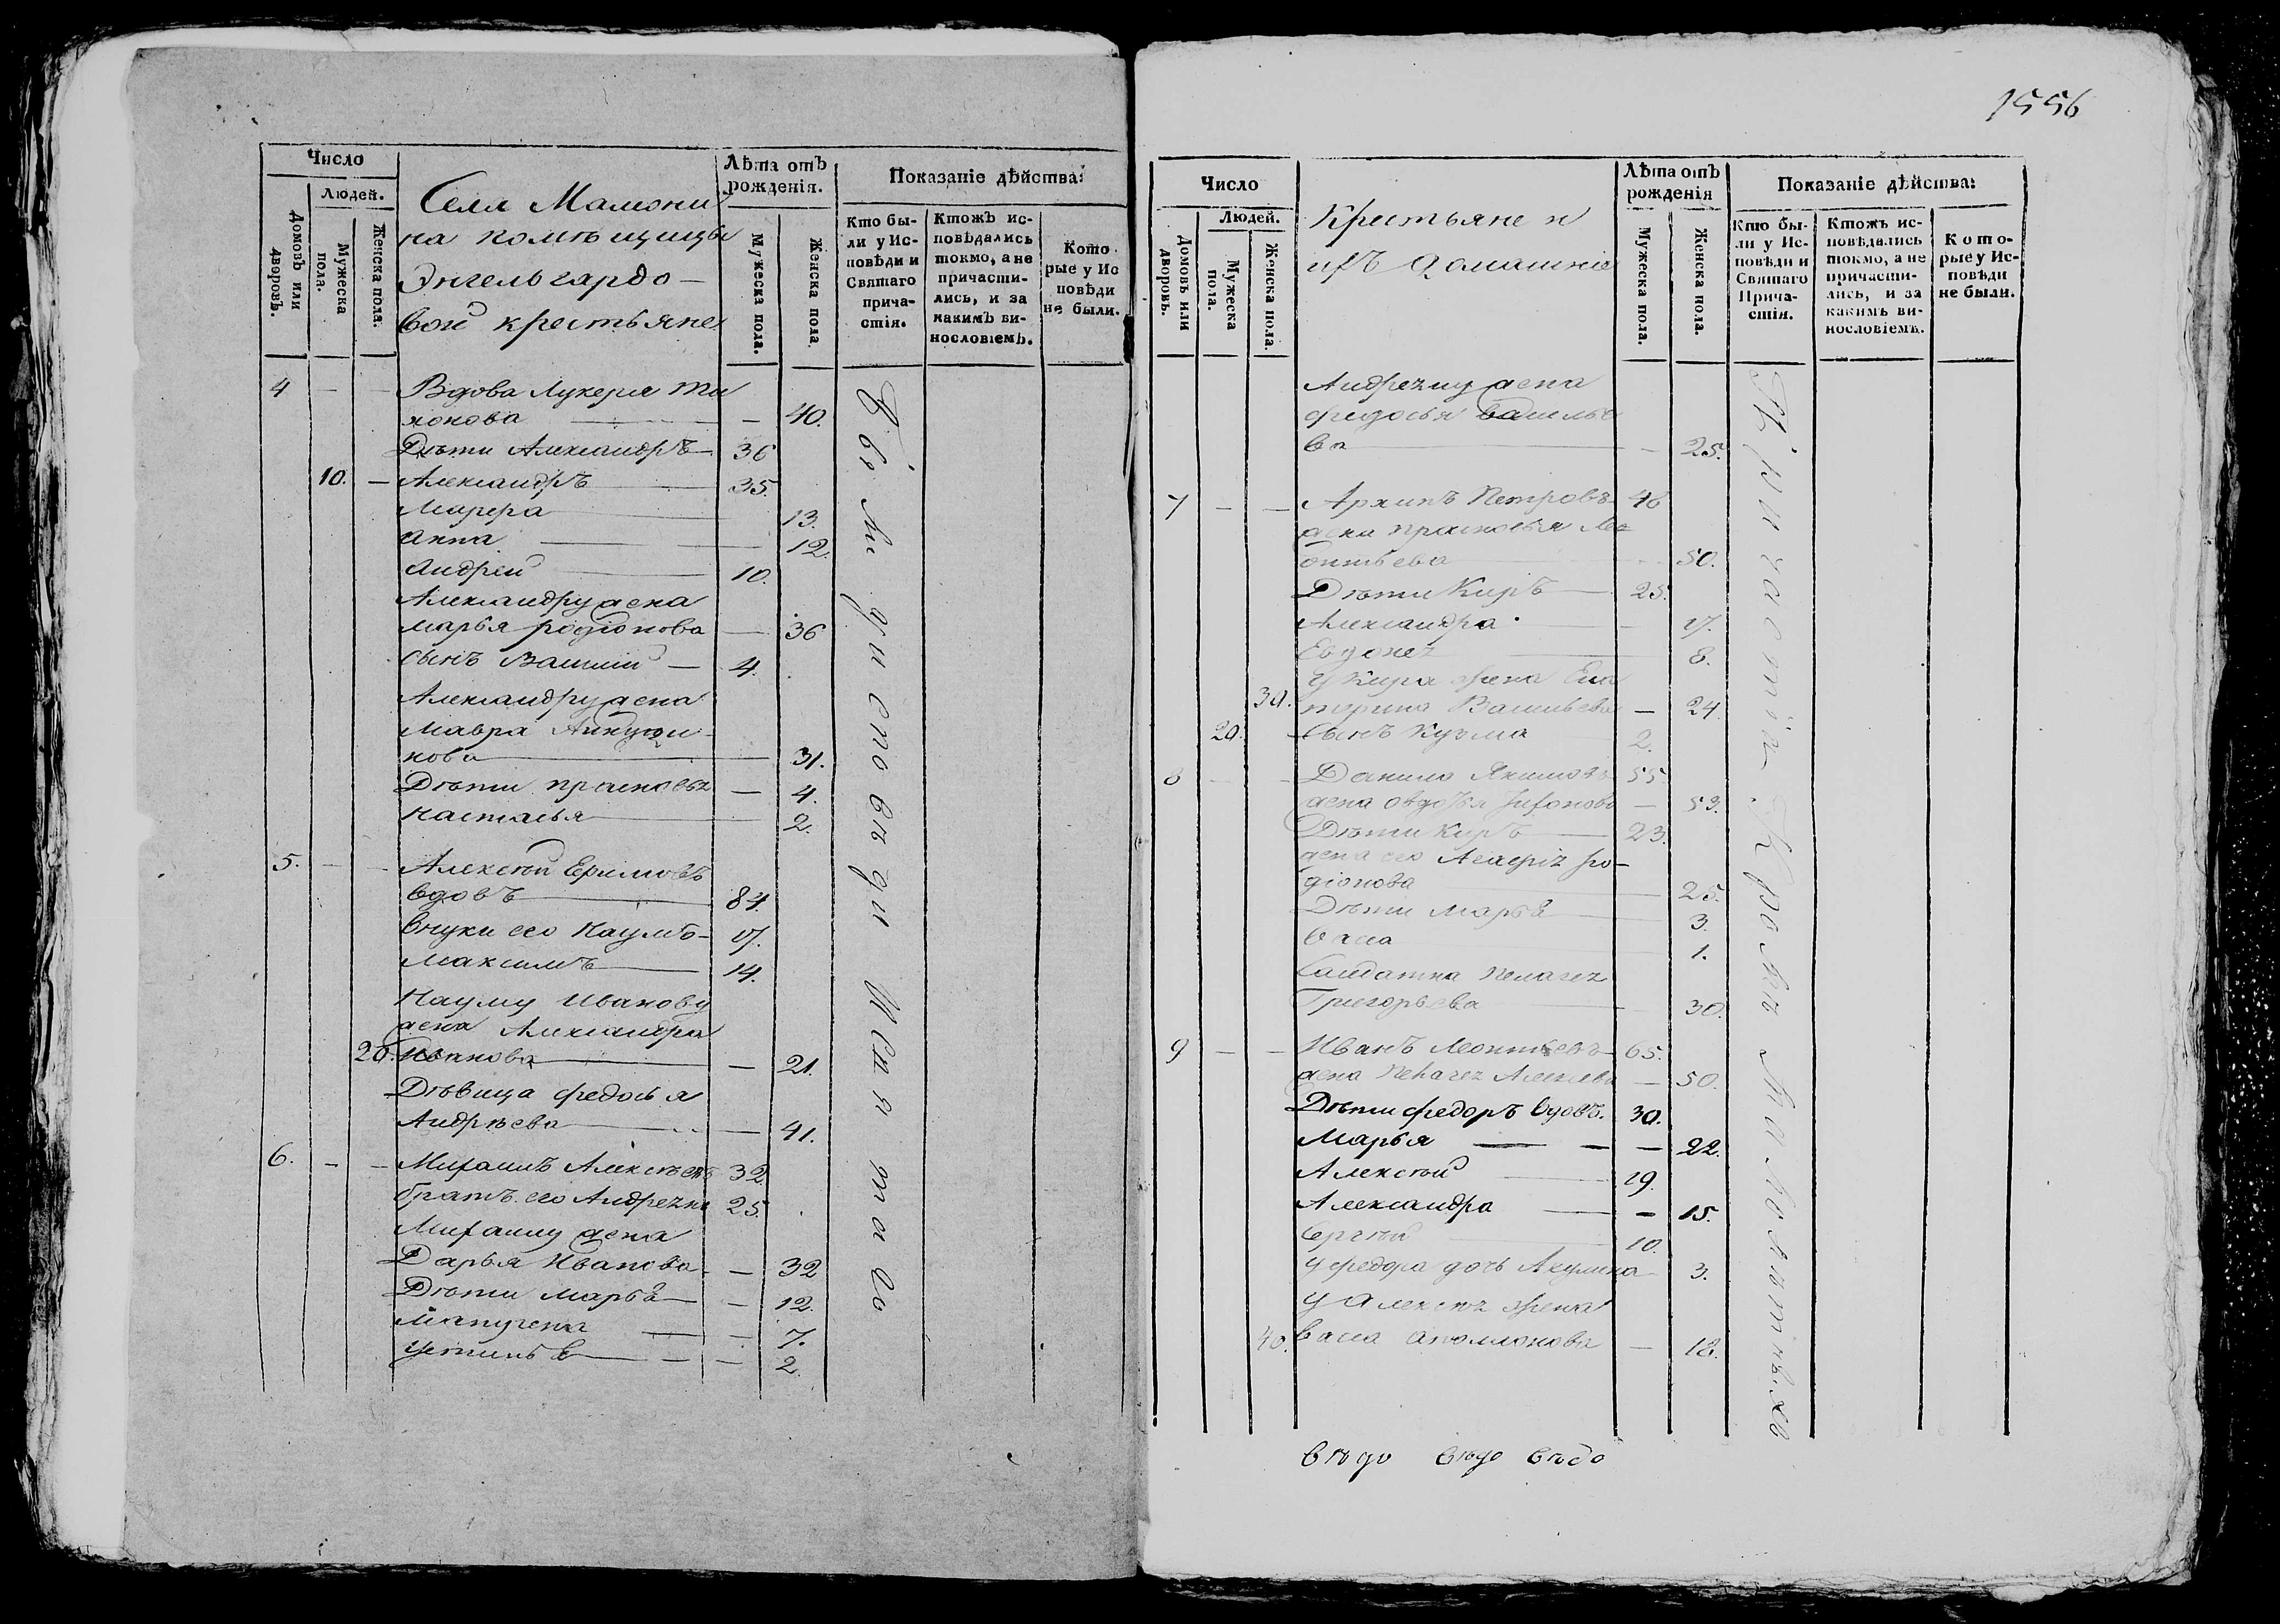 Число
Людей.
Домовъ или дворовъ.
Мужеска пола.
Женска пола.
Села Мамони
на помѣщицы
Энгельгардо–
вой крестьяне
Лѣта отъ рожденія.
Мужеска пола.
Женска пола
Показаніе дѣйства:
Кто бы-
ли у Ис-
повѣди и
Святаго
прича-
стія.
Ктожъ ис-
повѣдались
токмо, а не
причасти-
лись, и за
какимъ ви-
нословіемъ.
Кото-
рые у Ис
повѣди
не были.
4 – – Вдова Лукерья Ти
хонова – 40.
Дѣти Александръ 36
10. – Александръ 35.
Марѳа 13.
Анна 12.
Андрей 10.
Александру жена
Марья родіонова – 36
сынъ Василій – 4.
Александру жена
Мавра
нова 31.
Дѣти прасковья – 4.
Настасья 2.
5. – – Алексѣй Ефимовъ
вдовъ 84.
внуки его Наумъ – 17.
Максимъ 14.
Науму Иванову
жена Александра
20. Иванова – 21.
Дѣвица Федосья
Андрѣева – 41.
6. – – Михаилъ Алексѣевъ 32
братъ его Андреянъ 25.
Михаилу жена
Дарья Иванова – 32
Дѣти Марья – 12.
7.
Устинья – 2.
Вси у исповѣди и свята го
1556
Число
Людей.
Домовъ или дворовъ.
Мужеска пола.
Женска пола.
Крестьяне и
ихъ домашніе
Лѣта отъ рожденія
Мужеска пола.
Женска пола.
Показаніе дѣйства:
Кто бы-
ли у Ис-
повѣди и
Святаго
Прича-
стія.
Ктожъ ис-
повѣдались
токмо, а не
причасти-
лись, и за
какимъ ви-
нословіемъ.
Кото-
рые у Ис-
повѣди
не были.
Андреяну жена
федосья васильe
ва – 25.
7 – – Архипъ Петровъ 48
жена прасковья Ле
онтьева 50.
Дѣти Киръ 25.
Александра 17.
Евдокея 8.
У Кира жена Ека
30. терина Васильева – 24.
20. сынъ Кузма 2.
8 – – Данило Якимовъ 55.
жена овдотья – 53.
Дѣти Киръ 23.
жена его Ро–
діонова 25.
Дѣти Марья 3.
Васа 1.
Салдатка Пелагея
Григорьева 30.
9 – – Иванъ Леонтьевъ 65.
жена Пелагея – 50.
Дѣти федоръ вдовъ. 30.
Марья – 22.
Алексѣй 19.
Александра – 15.
Сергѣй 10.
у федора дочь Акулина 3.
у Алексѣя жена
40. Васа Аполлонова – 18.
причастія. Кромѣ малолѣтныхъ
вѣдо вѣдо вѣдо